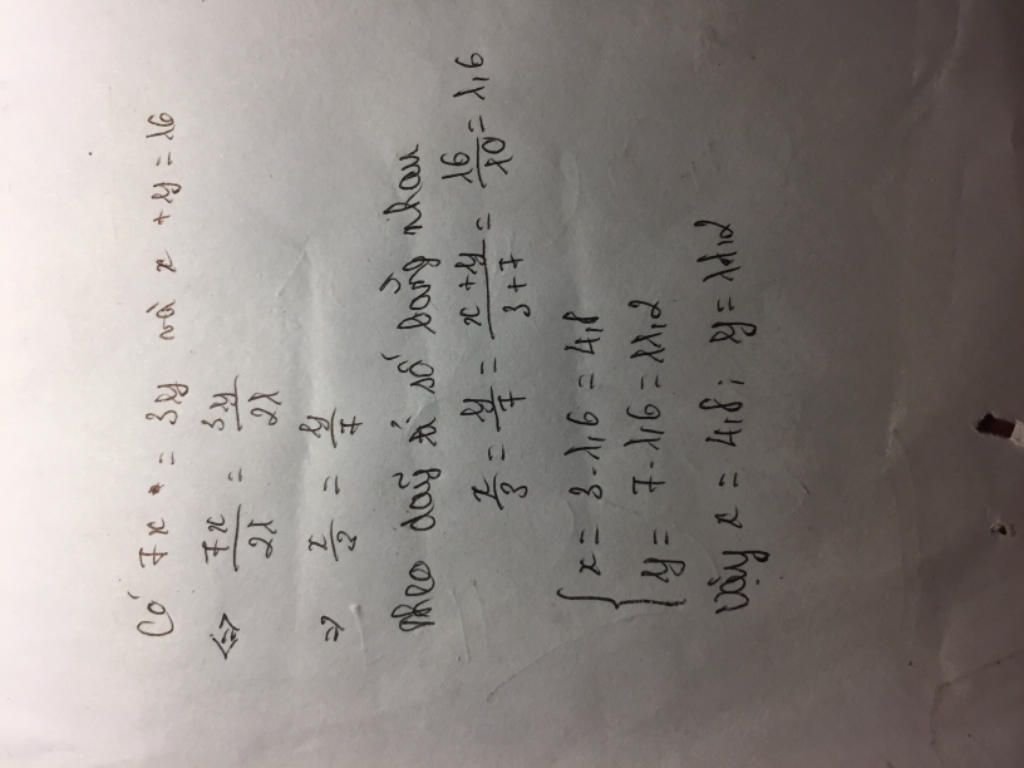 Có 7x = 3y và x + y = 16
<=> 7x/21 = 3y/21
=> x/3 = y/7
theo dãy tỉ số bằng nhau
x/3 = y/7 = x+y/3+7 = 16/10 = 1,6
{ x = 3.1,6 = 4,8
y = 7.1,6 = 11,2
Vậy x = 4,8 ; y = 11,2